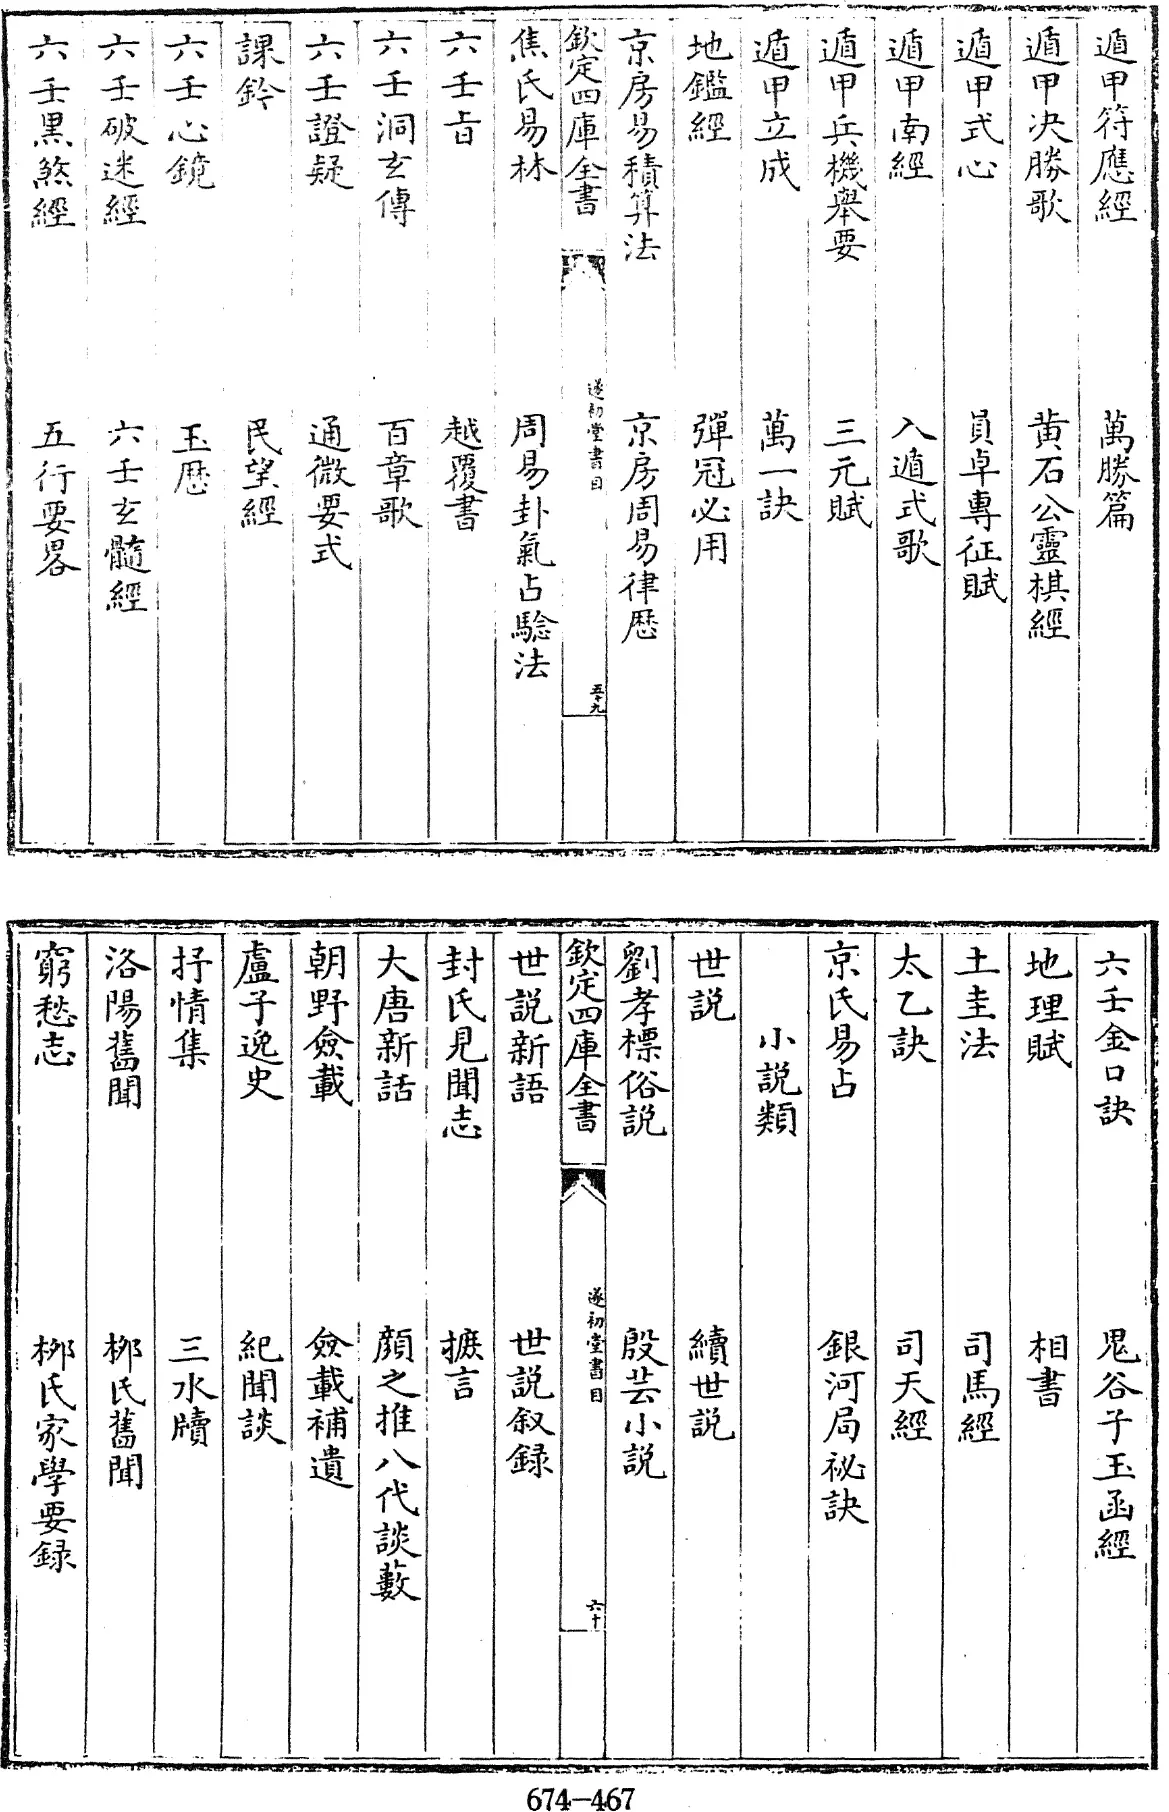 遁甲符應經　萬勝篇
遁甲決勝歌　黄石公靈棋經
遁甲式心　員卓專征賦
遁甲南經　入遁式歌
遁甲兵機舉要　三元賦
遁甲立成　萬一訣
地鑑經　彈冠必用
京房易積算法　京房周易律厯
欽定四庫全書　遂初堂書目　五十九
焦氏易林　周易卦氣占驗法
六壬旨　越覆書
六壬洞玄傳　百章歌
六壬證疑　通微要式
課鈐　民望經
六壬心鏡　玉厯
六壬破迷經　六壬玄髓經
六壬黒煞經　五行要畧
六壬金口訣　鬼谷子玉函經
地理賦　相書
土圭法　司馬經
太乙訣　司天經
京氏易占　銀河局祕訣
小説類
世説　續世説
劉孝標俗説　殷芸小説
欽定四庫全書　遂初堂書目　六十
世説新語　世説叙録
封氏見聞志　摭言
大唐新話　顔之推八代談藪
朝野僉載　僉載補遺
盧子逸史　紀聞談
抒情集　三水牘
洛陽舊聞　栁氏舊聞
窮愁志　栁氏家學要録
674—467